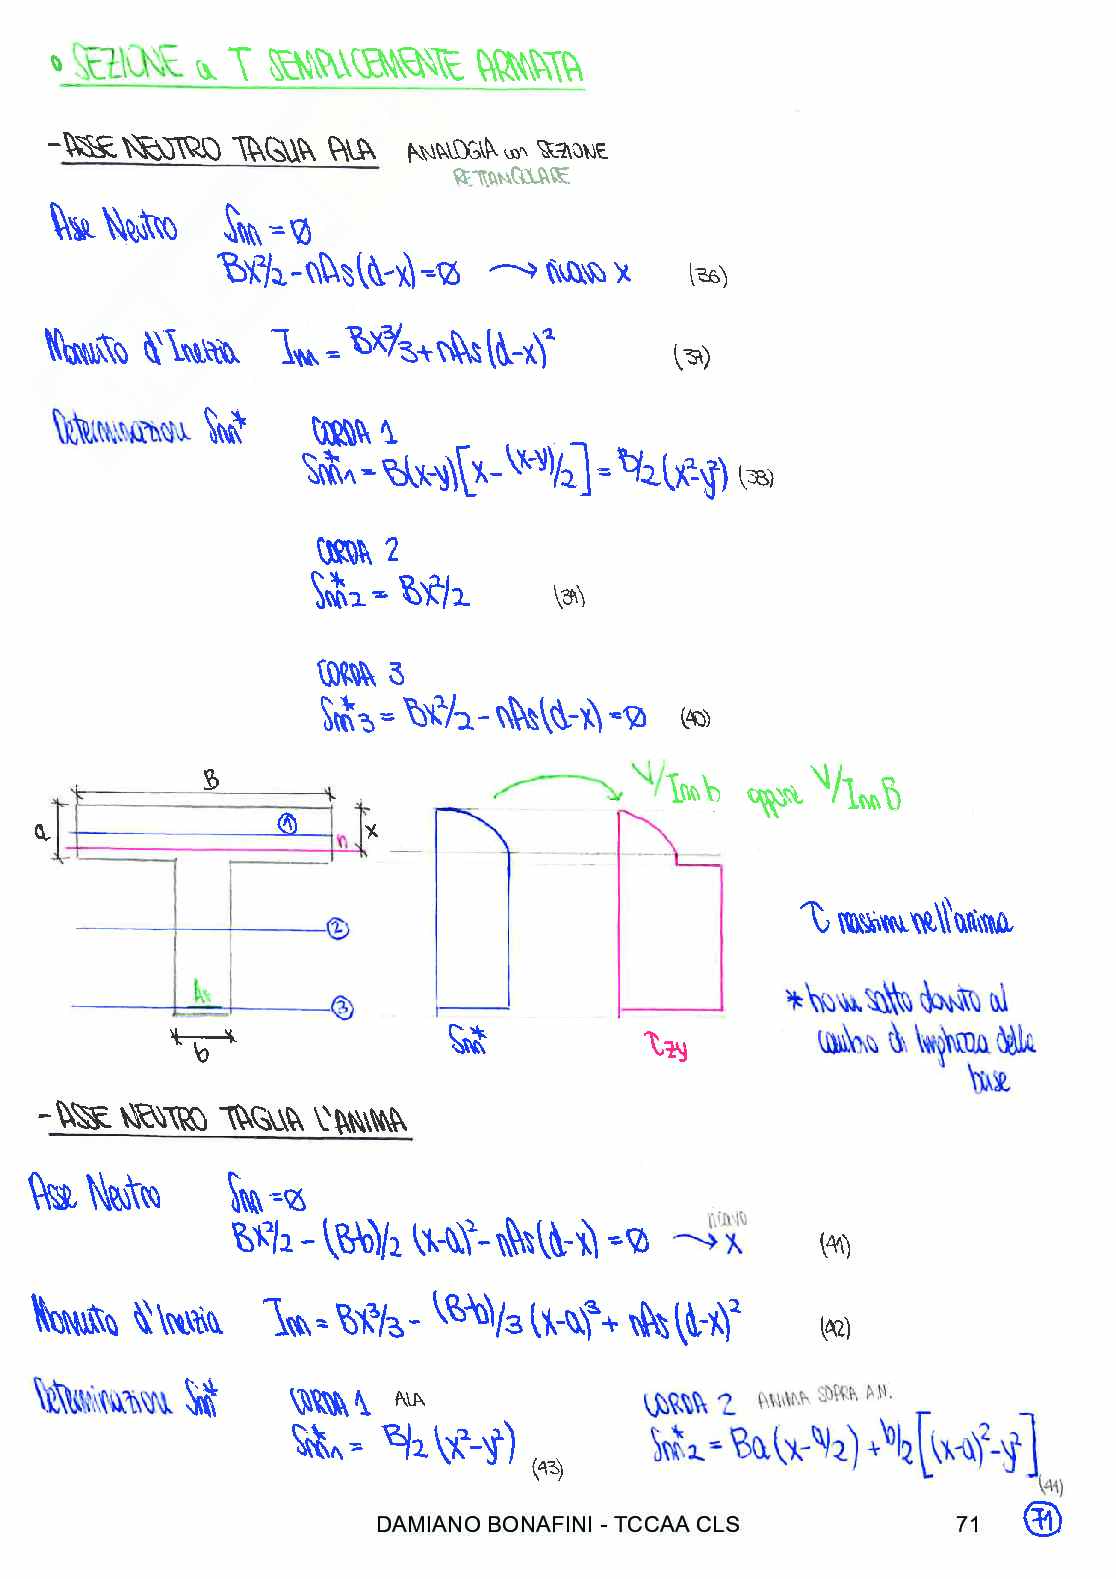 • SEZIONE a T SEMPLICEMENTE ARMATA
- ASSE NEUTRO TAGLIA ALA ANALOGIA con SEZIONE
RETTANGOLARE
Asse Neutro Snn = ø
Bx²/2 - nAs(d-x) = ø → ricavo x (36)
Momento d'Inerzia Inn = Bx³/3 + nAs(d-x)² (37)
Determinazione Snn* CORDA 1
Snn*1 = B(x-y)[x - (x-y)/2] = B/2 (x²-y²) (38)
CORDA 2
Snn*2 = Bx²/2 (39)
CORDA 3
Snn*3 = Bx²/2 - nAs(d-x) = ø (40)
B V/Inn b oppure V/Inn B
a 1 n x
2 τ massime nell'anima
As 3 * ho un salto dovuto al
b Snn* τzy cambio di larghezza della
base
- ASSE NEUTRO TAGLIA L'ANIMA
Asse Neutro Snn = ø
Bx²/2 - (B-b)/2 (x-a)² - nAs(d-x) = ø → ricavo x (41)
Momento d'Inerzia Inn = Bx³/3 - (B-b)/3 (x-a)³ + nAs(d-x)² (42)
Determinazione Snn* CORDA 1 ALA CORDA 2 ANIMA SOPRA A.N.
Snn*1 = B/2 (x²-y²) (43) Snn*2 = Ba(x-a/2) + b/2[(x-a)²-y²] (44)
DAMIANO BONAFINI - TCCAA CLS 71 71